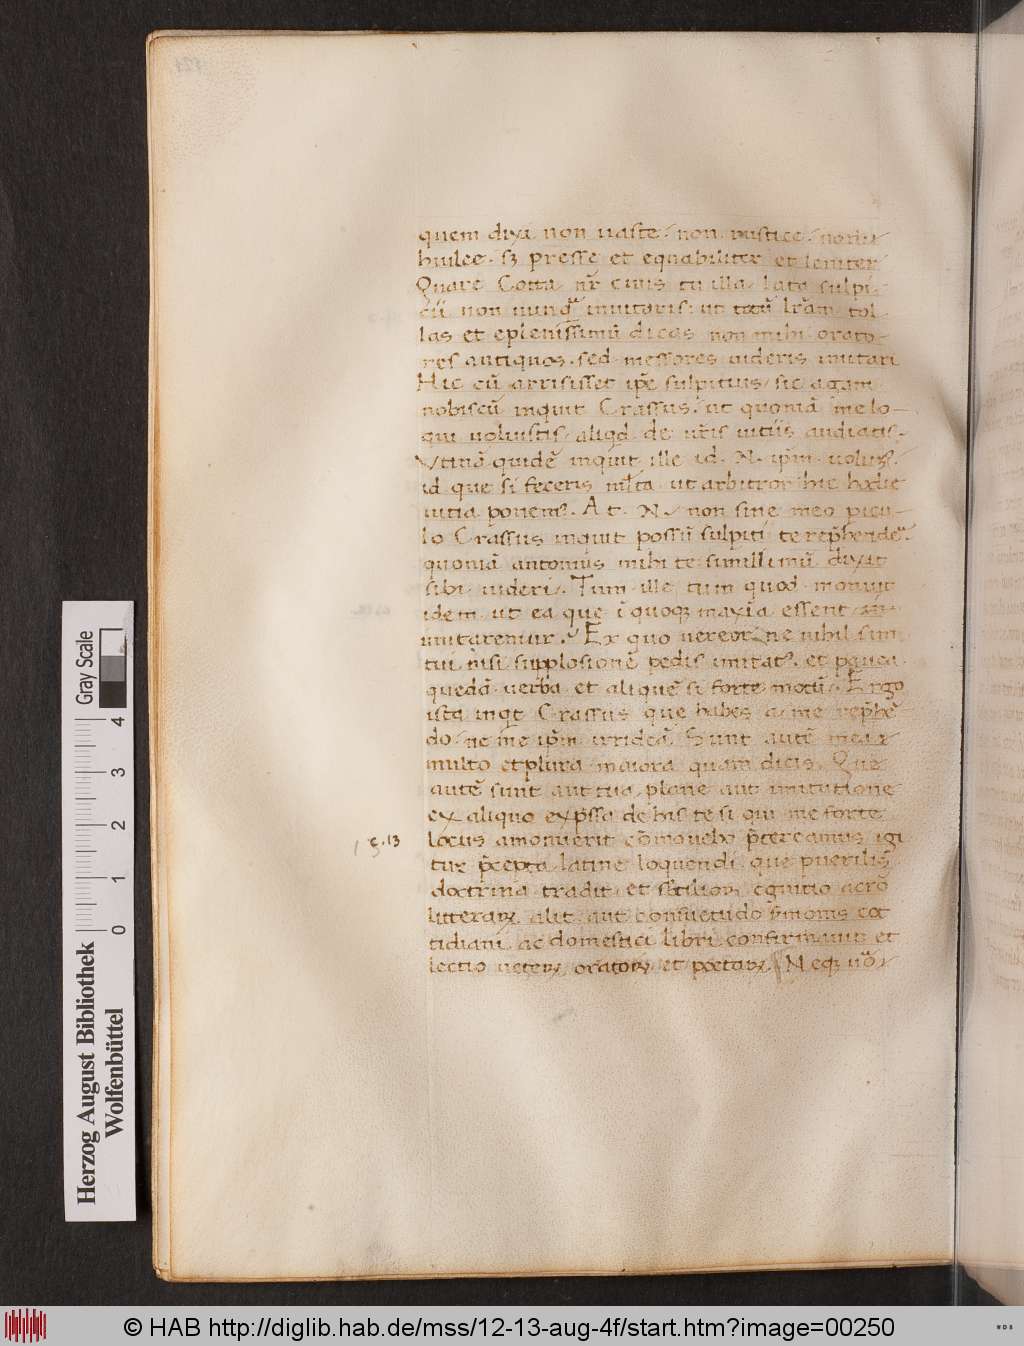 quem dixi non uaste. non rustice. non
hiulce. sꝫ presse et equabiliter et leniter
Quare Cotta nr̄ cuius tu illa lata sulpi
cū non nunqᷓ imitaris. ut totū lr̄am tol
las et eplenissimū dicas non mihi orato
res antiquos. sed messores uideris imitari
Hic cū arrisisset ip̄e sulpitius. sic agam
nobiscū inquit Crassus. ut quoniā me lo
qui uoluistis. aliqd de ur̄is uitiis audiatis.
Vtinā quidē inquit ille id. N. ip̄m uolumꝰ.
id que si feceris ml̄ta ut arbitror hic hodie
uitia ponemꝰ. At. N. non sine meo picu
lo Crassus inquit possū sulpiti te rep̄hendeᷓ
quoniā antonius mihi te simillimū dixit
sibi uideri. Tum ille tum quod monuit
idem ut ea que ī quoqꝫ maxīa essent
imitaremur. Ex quo uereor ne nihil sim
tui nisi supplosionē pedis imitatꝰ. et pauca
quedā uerba et aliquē si forte motū. Ergo
ista inqt Crassus que habes a me rep̄hē
do. ne me ip̄m irrideā. Sunt autē mea
multo et plura maiora quam dicis. Que
autē sunt aut tua plane aut imitatione
ex aliquo exp̄ssa de his te si qui me forte
locus amonuerit cōmouebo p̄tereamus igi
c. 13
tur p̄cepta latine loquendi. que puerilis
doctrina tradit et sb̄tiliorꝝ cgnitio ac rō
litterarꝝ alit. aut consuetudo sr̄monis cot
tidiani ac domestici libri confirmant et
lectio ueterꝝ oratorꝝ et poetarꝝ. Neqꝫ uᷓo
4
3
2
1
0
Gray Scale
Herzog August Bibliothek
Wolfenbüttel
© HAB http://diglib.hab.de/mss/12-13-aug-4f/start.htm?image=00250